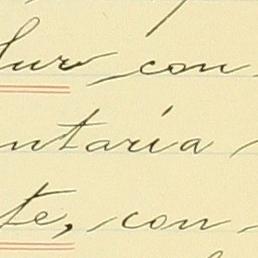 Sur con
ntaria
te, con